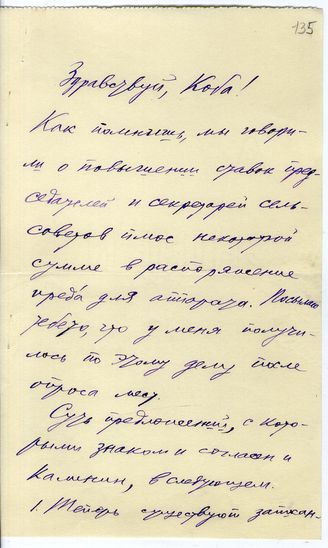 135
Здравствуй, Коба!
Как помнишь, мы говори-
ли о повышении ставок пред-
седателей и секретарей сель-
советов плюс некоторой
сумме в распоряжение
преда для аппарата. Посылаю
тебе то, что у меня получи-
лось по этому делу после
опроса мест.
Суть предложений, с кото-
рыми знаком и согласен и
Калинин, в следующем.
1. Теперь существуют